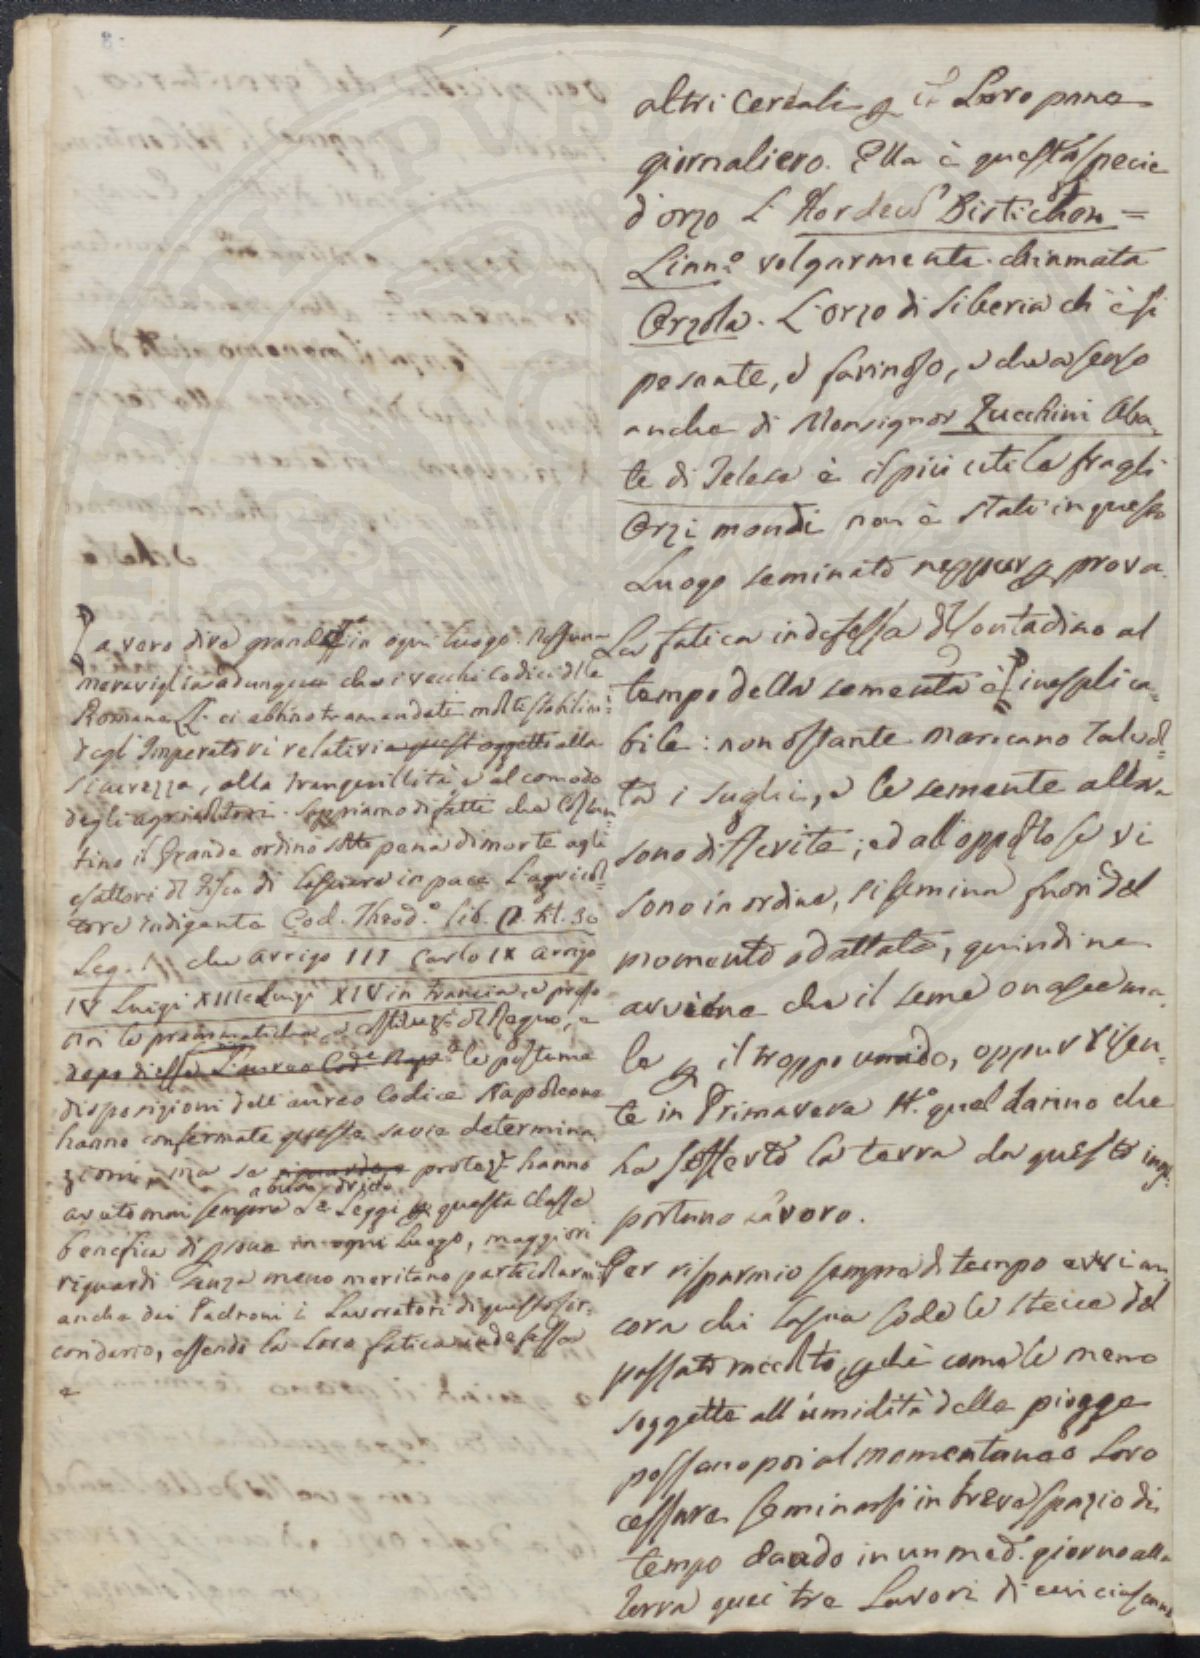 altri cereali p il Loro pane
giornaliero. Ella è questa specie
d'orzo L'Hordeu Distichon =
Linn.o volgarmente chiamata
Orzola. L'orzo di Siberia ch'è sì
pesante, e farinoso, e che a senso
anche di Monsignor Zucchini Aba
te di è il più utile fragli
Orzi mondi non è stato in questo
Luogo seminato neppur p prova.
La fatica indefessa dl Contadino al
tempo della sementa è inesplica=
bile: non ostante mancano tal vol=
ta i sughi, e le semente allora
sono differite; ed all'opposto se vi
sono in ordine, si semina fuori del
momento adattato, quindi ne
avviene che il seme o nasce ma
le p il troppo umido, oppur risen=
te in Primavera quel danno che
ha sofferto la terra da questo inop=
portuno lavoro.
Per risparmio sempre di tempo avvi an
cora chi lascia sode le stecce del
passato raccolto, pchè come le meno
soggette all'umidità delle piogge
possano poi al momentaneo Loro
cessare seminarsi in breve spazio di
tempo dando in un med.o giorno alla
terra quei tre Lavori di cui ciascuno
La vero dire grande in ogni luogo. Nessuna
meraviglia adunque che i vecchi Codici dlla
Romana L. ci abbino tramandati molti stabilim:
degli Imperatori relativi a quest oggetto alla
sicurezza, alla tranquillità, e al comodo
degli agricoltori. Sappiamo di fatti che Costan
tino il Grande ordinò sotto pena di morte agli
esattori dl Fisco di lasciare in pace L'agricol=
tore indigente Cod. Theod.o lib. tit. 30
Leg. 1 che Arrigo III Carlo IX Arrigo
IV Luigi XIII e Luigi XIV in Francia, e presso
noi le prammatiche, e dl Regno, e
dopo di esse L'aureo Cod.e Nap.e le postume
disposizioni dell'aureo Codice Napoleone
hanno confermate queste savie determina
zioni, ma se riguardare protez.e hanno
a buon dritto
avuto mai sempre Le Leggi p questa classe
benefica di psone in ogni Luogo, maggiori
riguardi senza meno meritano particolarm:
anche dai Padroni i Lavoratori di questo cir=
condario, essendo la loro fatica indefessa
e